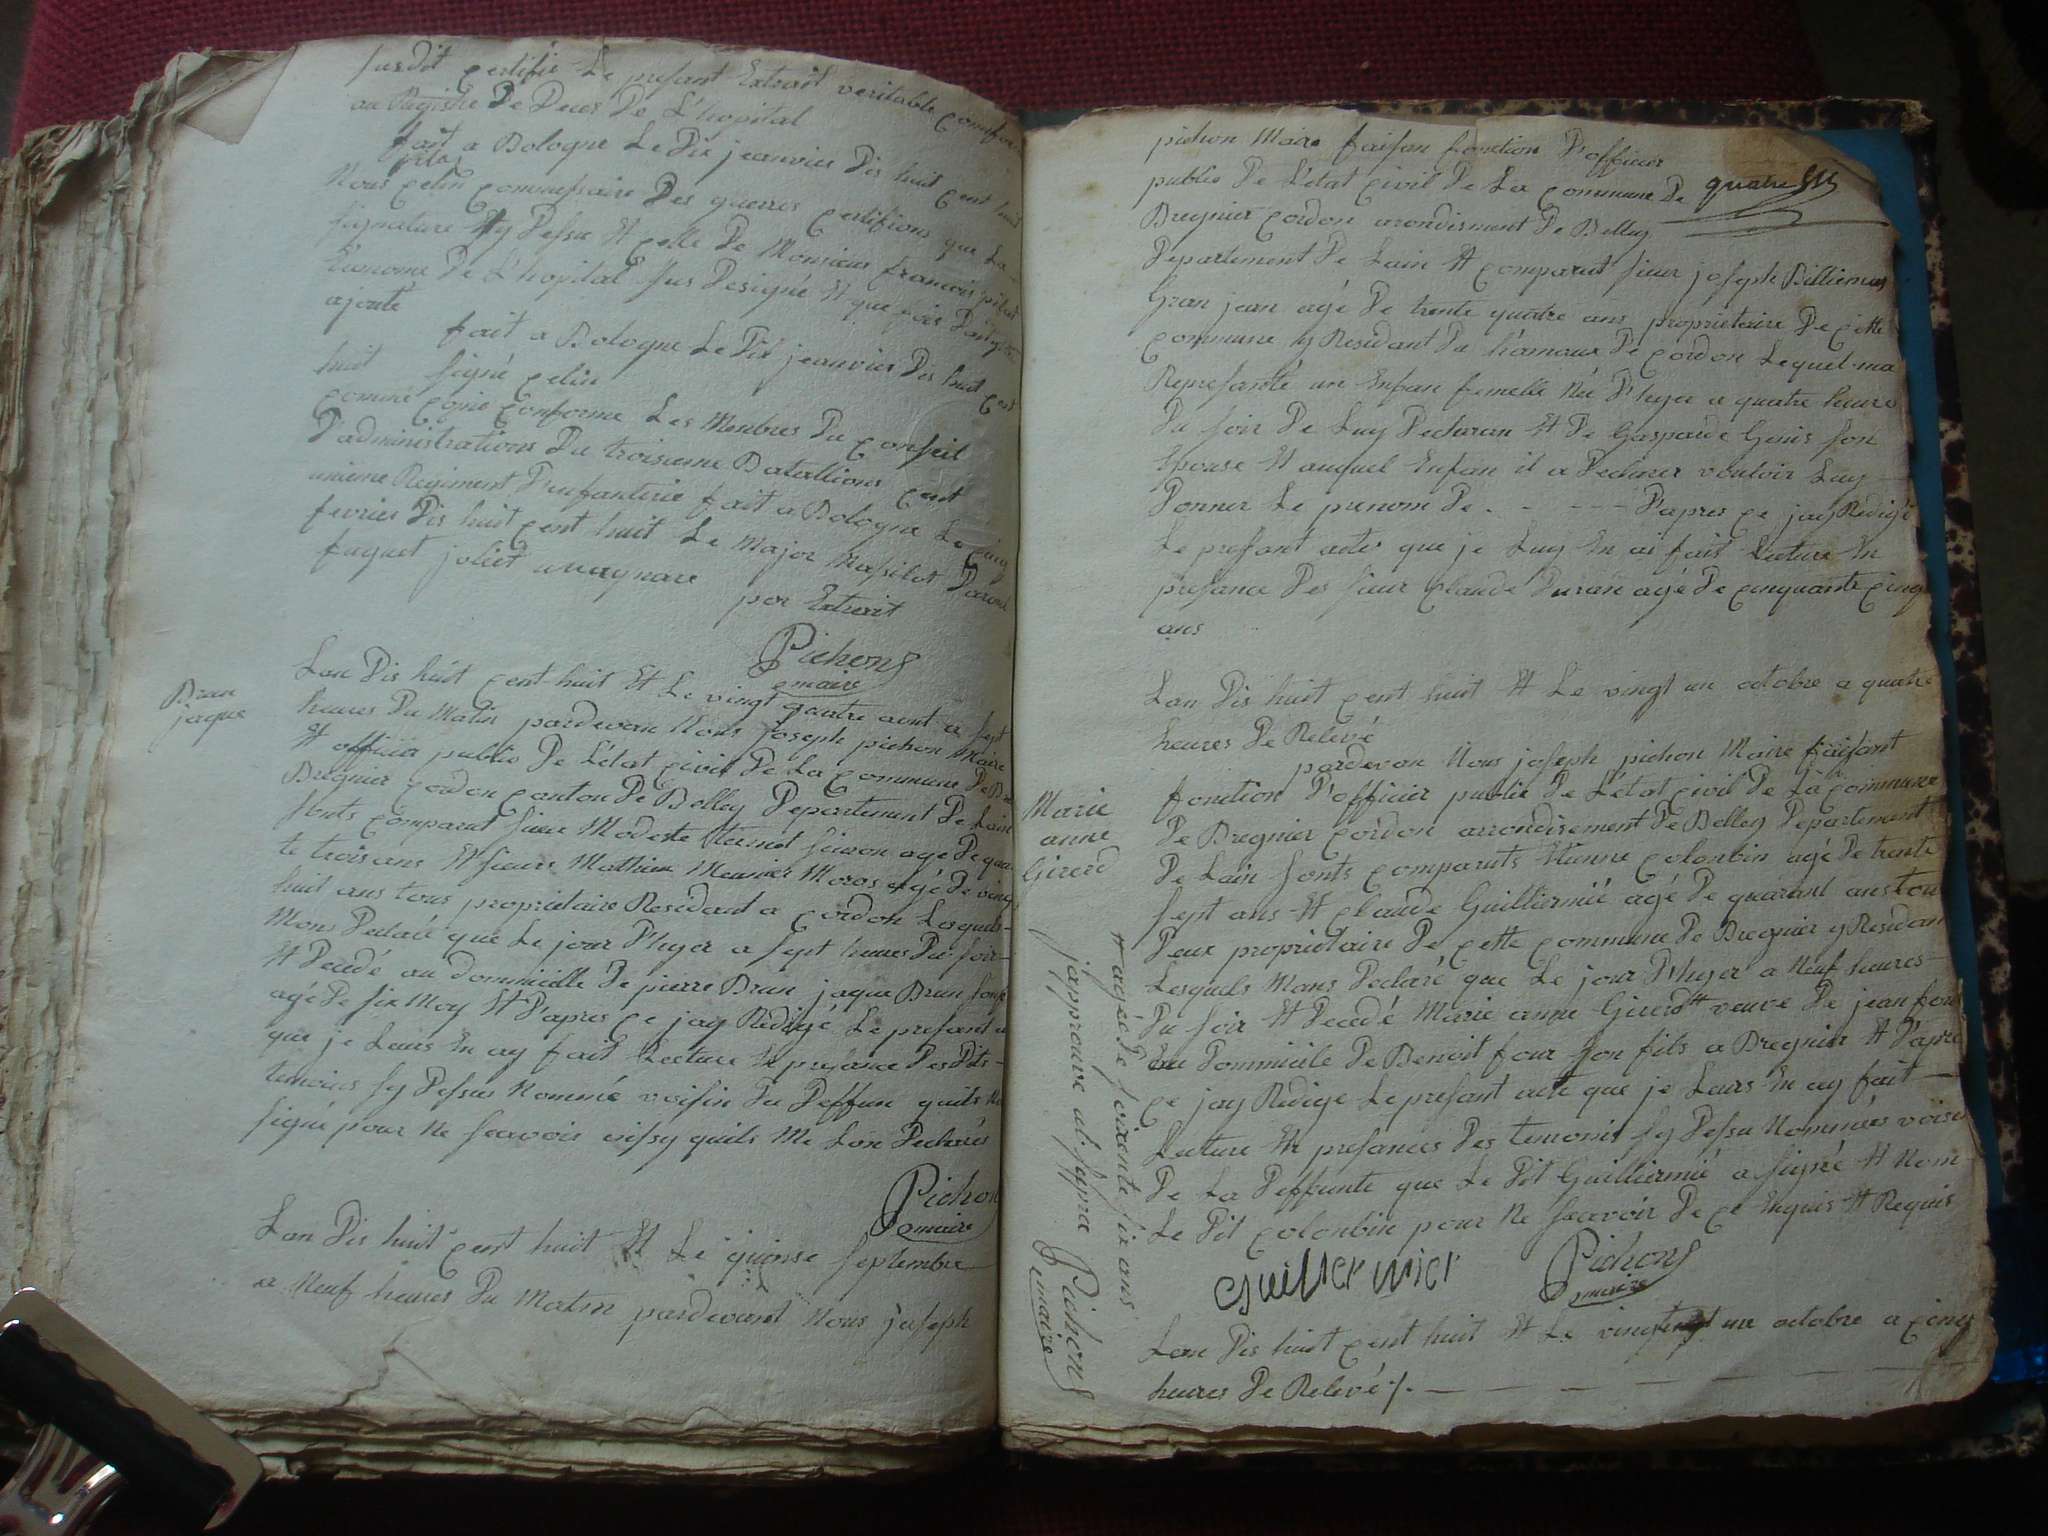 susdit certifie Le presant Extrait veritable conforme
au Registre De Deces De L'hopital
fait a Bologne Le Dix jeanvier Dis huit cent huit
pilat
Nous celin commessaire Des guerres certifions que La
signature sy Dessu Et celle De Monsieur francois pilat
Econome De L'hopital sus Designé Et que foir Doit y etre
ajouté
fait a Bologne Le Dix jeanvier Dis huit cent
huit signé celin
comme copie conforme Les Membres Du conseil
D'administrations Du troisieme Batallions cent
unieme Regiment D'enfanterie fait a Bologne Le cinq
fevrier Dis huit cent huit Le Major Masilot
fuquet joliet
par Extrait
Pichon
maire
Bran
jaque
Lan Dis huit cent huit Et Le vingt quatre aout a sept
heures Du Matin pardevan Nous Joseph pichon Maire
Et officier public De L'état civil De La commune De
Bregnier cordon canton De Belley Departement De Lain
sonts comparut sieur Modeste ternet siuron agé De quaran
te trois ans Et sieurs Mathieu Meunier Moros agé De vingt
huit ans tous proprietaire Residant a cordon Lesquels
Mons Declaré que Le jour D'hyer a sept heures Du soir
Et Decedé au Dommicille De pierre Bran jaque Bran son fils
agé De six Moy Et D'apres ce jay Rédigé Le presant a
que je Leurs En ay fait Lecture En presance Des Dits
temoins sy Dessus Nommé voisin Du Deffun quils N
signé pour Ne scavoir insy quils Me Lon Declarés
Pichon
maire
Lan Dis huit cent huit Et Le quinse septembre
a Neuf heures Du Matin pardevant Nous joseph
pichon Maire faisan fonction D'officier
public De L'état civil De La commune De quatre
Bregnier cordon arondisment De Belley
Departement De Lain Et comparut sieur joseph Billiemas
Gran jean agé De trente quatre ans proprietaire De cette
commune y Residant Du hamaux De cordon Lequel ma
Represanté un Enfan femelle Née D'hyer a quatre heure
Du soir De Luy Declaran Et De Gasparde Genis son
Epouse Et auquel Enfan il a Declarer vouloir Luy
Donner Le prenom De . - - - - D'apres ce jay Rédigé
Le presant acte que je Luy En ai fait Lecture En
presance Des sieur Claude Duran agé De cinquante cinq
ans
Lan Dis huit cent huit Et Le vingt un octobre a quatre
heures De Relevé
pardevan Nous joseph pichon Maire faisant
fonction D'officier public De L'état civil De La commune
De Bregnier cordon arrondisement De Belley Departement
De Lain sonts comparuts Etienne colonbin agé De trente
sept ans Et claude Guilliermié agé De quarant ans tou
Deux proprietaire De cette commune De Bregnier y Residan
Lesquels Mons Declaré que Le jour D'hyer a Neuf heures
Du soir Et Decedé Marie anne Girerd # veuve De jean four
au Dommicile De Benoit four son fils a Bregnier Et D'apre
ce jay Redige Le presant acte que je Leurs En ay fait
Lecture En presances Des temonis sy Dessu Nommés voisin
De La Deffunte que Le Dit Guilliermié a signée Et Nom
Le Dit colonbin pour Ne scavoir De ce Enquis Et Requis
Guillermier
Pichon
maire
Lan Dis huit cent huit Et Le vingt un octobre a cinq
heures De Relevé
Marie
anne
Girerd
# agée De soixente six ans
j'approuve
Pichon
maire